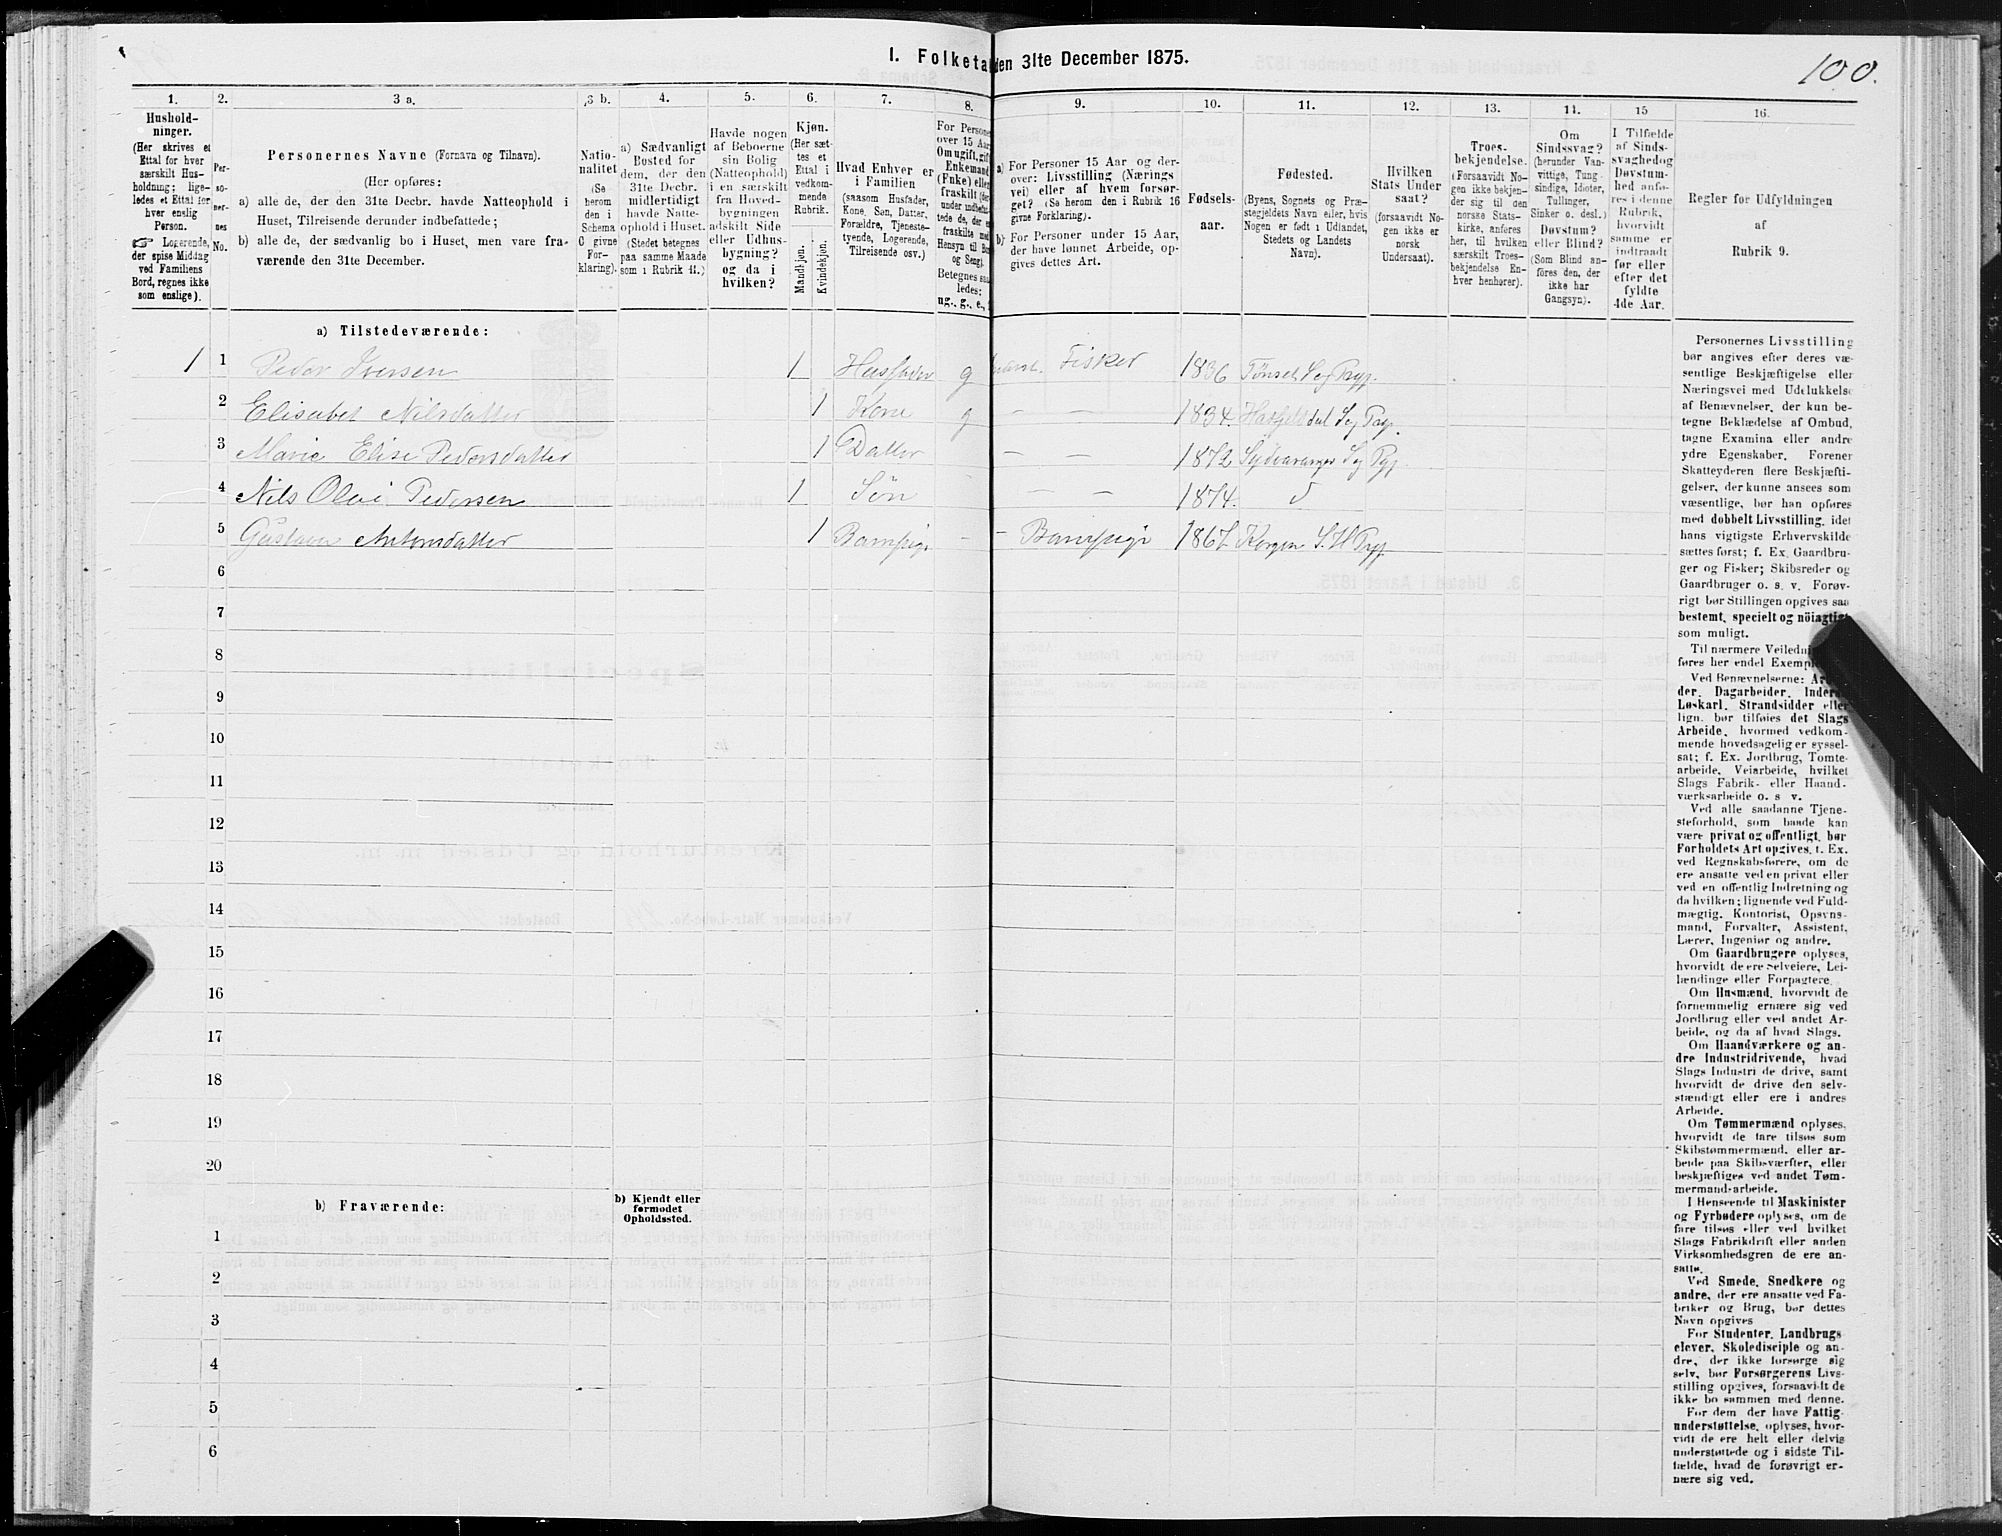 I. Folketal den 31te December 1875.
100.
1. 2. 3 a. 3 b. 4. 5. 6. 7. 8. 9. 10. 11. 12. 13. 14. 15 16.
Hushold-
ninger.
(Her skrives et
Ettal for hver
særskilt Hus-
holdning; lige-
ledes et Ettal for
hver enslig
Person.
☞ Logerende,
der spise Middag
ved Familiens
Bord, regnes ikke
som enslige).
Per-
so-
ner-
nes
No.
Personernes Navne (Fornavn og Tilnavn).
(Her opføres:
a) alle de, der den 31te Decbr. havde Natteophold i
Huset, Tilreisende derunder indbefattede;
b) alle de, der sædvanlig bo i Huset, men vare fra-
værende den 31te December.
Natio-
nalitet
(Se
herom
den i
Schema
C givne
For-
klaring).
a) Sædvanligt
Bosted for
dem, der den
31te Decbr.
midlertidigt
havde Natte-
ophold i Huset.
(Stedet betegnes
paa samme Maade
som i Rubrik 11.)
Havde nogen
af Beboerne
sin Bolig
(Natteophold)
i en særskilt
fra Hoved-
bygningen
adskilt Side
eller Udhus-
bygning?
og da i
hvilken?
Kjøn.
(Her sæt-
tes et
Ettal i
vedkom-
mende
Rubrik.
Mandkjøn.
Kvindekjøn.
Hvad Enhver er
i Familien
(saasom Husfader,
Kone, Søn, Datter,
Forældre, Tjeneste-
tyende, Logerende,
Tilreisende osv.)
For Personer
over 15 Aar
Om ugift, gift,
Enkemand
(Enke) eller
fraskilt
Betegnes saa-
ledes:
ug., g., e.,
a) For Personer 15 Aar og der-
over: Livsstilling (Nærings
vei) eller af hvem forsør-
get? (Se herom den i Rubrik 16
givne Forklaring).
b) For Personer under 15 Aar,
der have lønnet Arbeide, op-
gives dettes Art.
Fødsels-
aar.
Fødested.
(Byens, Sognets og Præ-
stegjeldets Navn eller, hvis
Nogen er født i Udlandet,
Stedets og Landets
Navn).
Hvilken
Stats Under
saat?
(forsaavidt No-
gen ikke er
norsk
Undersaat).
Troes-
bekjendelse.
(Forsaavidt No-
gen ikke bekjen-
der sig til den
norske Stats-
kirke, anføres
her, til hvilken
særskilt Troes-
bekjendelse En-
hver henhører).
Om
Sindssvag?
(herunder Van-
vittige, Tung-
sindige, Idioter,
Tullinger,
Sinker o. desl.)
Døvstum?
eller Blind?
(Som Blind an-
føres den, der
ikke har
Gangsyn).
I Tilfælde
af Sinds-
svaghed og
Døvstum-
hed anfø-
res i denne
Rubrik,
hvorvidt
samme er
indtraadt
før eller
efter det
fyldte
4de Aar.
Regler for Udfyldningen
af
Rubrik 9.
a) Tilstedeværende:
1 1 Peder Iversen 1 Husfader g Fisker 1836 Tønset Præg.
2 Elisabet Nilsdatter 1 Kone g – – 1834.
3 Marie Elise Pedersdatter 1 Datter – – 1872 Sydvaranger
4 Nils Olai Pedersen 1 Søn – – 1874.
5 Antonsdatter 1 Barnepige – – Barnepige 1867 Korgen
6
7
8
9
10
11
12
13
14
15
16
17
18
19
20
b) Fraværende: b) Kjendt eller
formodet
Opholdssted.
1
2
3
4
5
6
Personernes Livsstilling
bør angives efter deres væ-
sentlige Beskjæftigelse eller
Næringsvei med Udelukkelse
af Benævnelser, der kun be-
tegne Beklædelse af Ombud,
tagne Examina eller andre
ydre Egenskaber. Forener
Skatteyderen flere Beskjæfti-
gelser, der kunne ansees som
væsentlige, bør han opføres
med dobbelt Livsstilling, idet
hans vigtigste Erhvervskilde
sættes først; f. Ex. Gaardbru-
ger og Fisker; Skibsreder og
Gaardbruger o. s. v. Forøv-
rigt bør Stillingen opgives saa
bestemt, specielt og nöiagtigt
som muligt.
Til nærmere Veiledning
føres her endel Exempler
Ved Benævnelserne: Arbei-
der, Dagarbeider, Inderst,
Løskarl, Strandsidder eller
lign. bør tilføies det Slags
Arbeide, hvormed vedkom-
mende hovedsagelig er syssel-
sat; f. Ex. Jordbrug, Tomte-
arbeide, Veiarbeide, hvilket
Slags Fabrik- eller Haand-
værksarbeide o. s v.
Ved alle saadanne Tjene-
steforhold, som baade kan
være privat og offentligt, bør
Forholdets Art opgives, f. Ex.
ved Regnskabsførere, om de
ere ansatte ved en privat eller
ved en offentlig Indretning og
da hvilken; lignende ved Fuld-
mægtig, Kontorist, Opsyns-
mand, Forvalter, Assistent,
Lærer, Ingeniør og andre.
Om Gaardbrugere oplyses,
hvorvidt de ere Selveiere, Lei-
lændinge eller Forpagtere.
Om Husmænd, hvorvidt de
fornemmelig ernære sig ved
Jordbrug eller ved andet Ar-
beide, og da af hvad Slags.
Om Haandværkere og an-
dre Industridrivende, hvad
Slags Industri de drive, samt
hvorvidt de drive den selv-
stændigt eller ere i andres
Arbeide.
Om Tømmermænd oplyses,
hvorvidt de fare tilsøs som
Skibstømmermænd, eller ar-
beide paa Skibsværfter, eller
beskjæftiges ved andet Tøm-
mermand-arbeide.
I Henseende til Maskinister
og Fyrbødere oplyses, om de
fare tilsøs eller ved hvilket
Slags Fabrikdrift eller anden
Virksomhedsgren de ere an-
satte.
Ved Smede, Snedkere og
andre, der ere ansatte ved Fa-
briker og Brug, bør dettes
Navn opgives
For Studenter, Landbrugs-
elever, Skoledisciple og an-
dre, der ikke forsørge sig
selv, bør Forsørgerens Livs-
stilling opgives, forsaavidt de
ikke bo sammen med denne.
For dem der have Fattig-
understøttelse, oplyses, hvor-
vidt de ere helt eller delvis
understøttede og i sidste Til-
fælde, hvad de forøvrigt er-
nære sig ved.